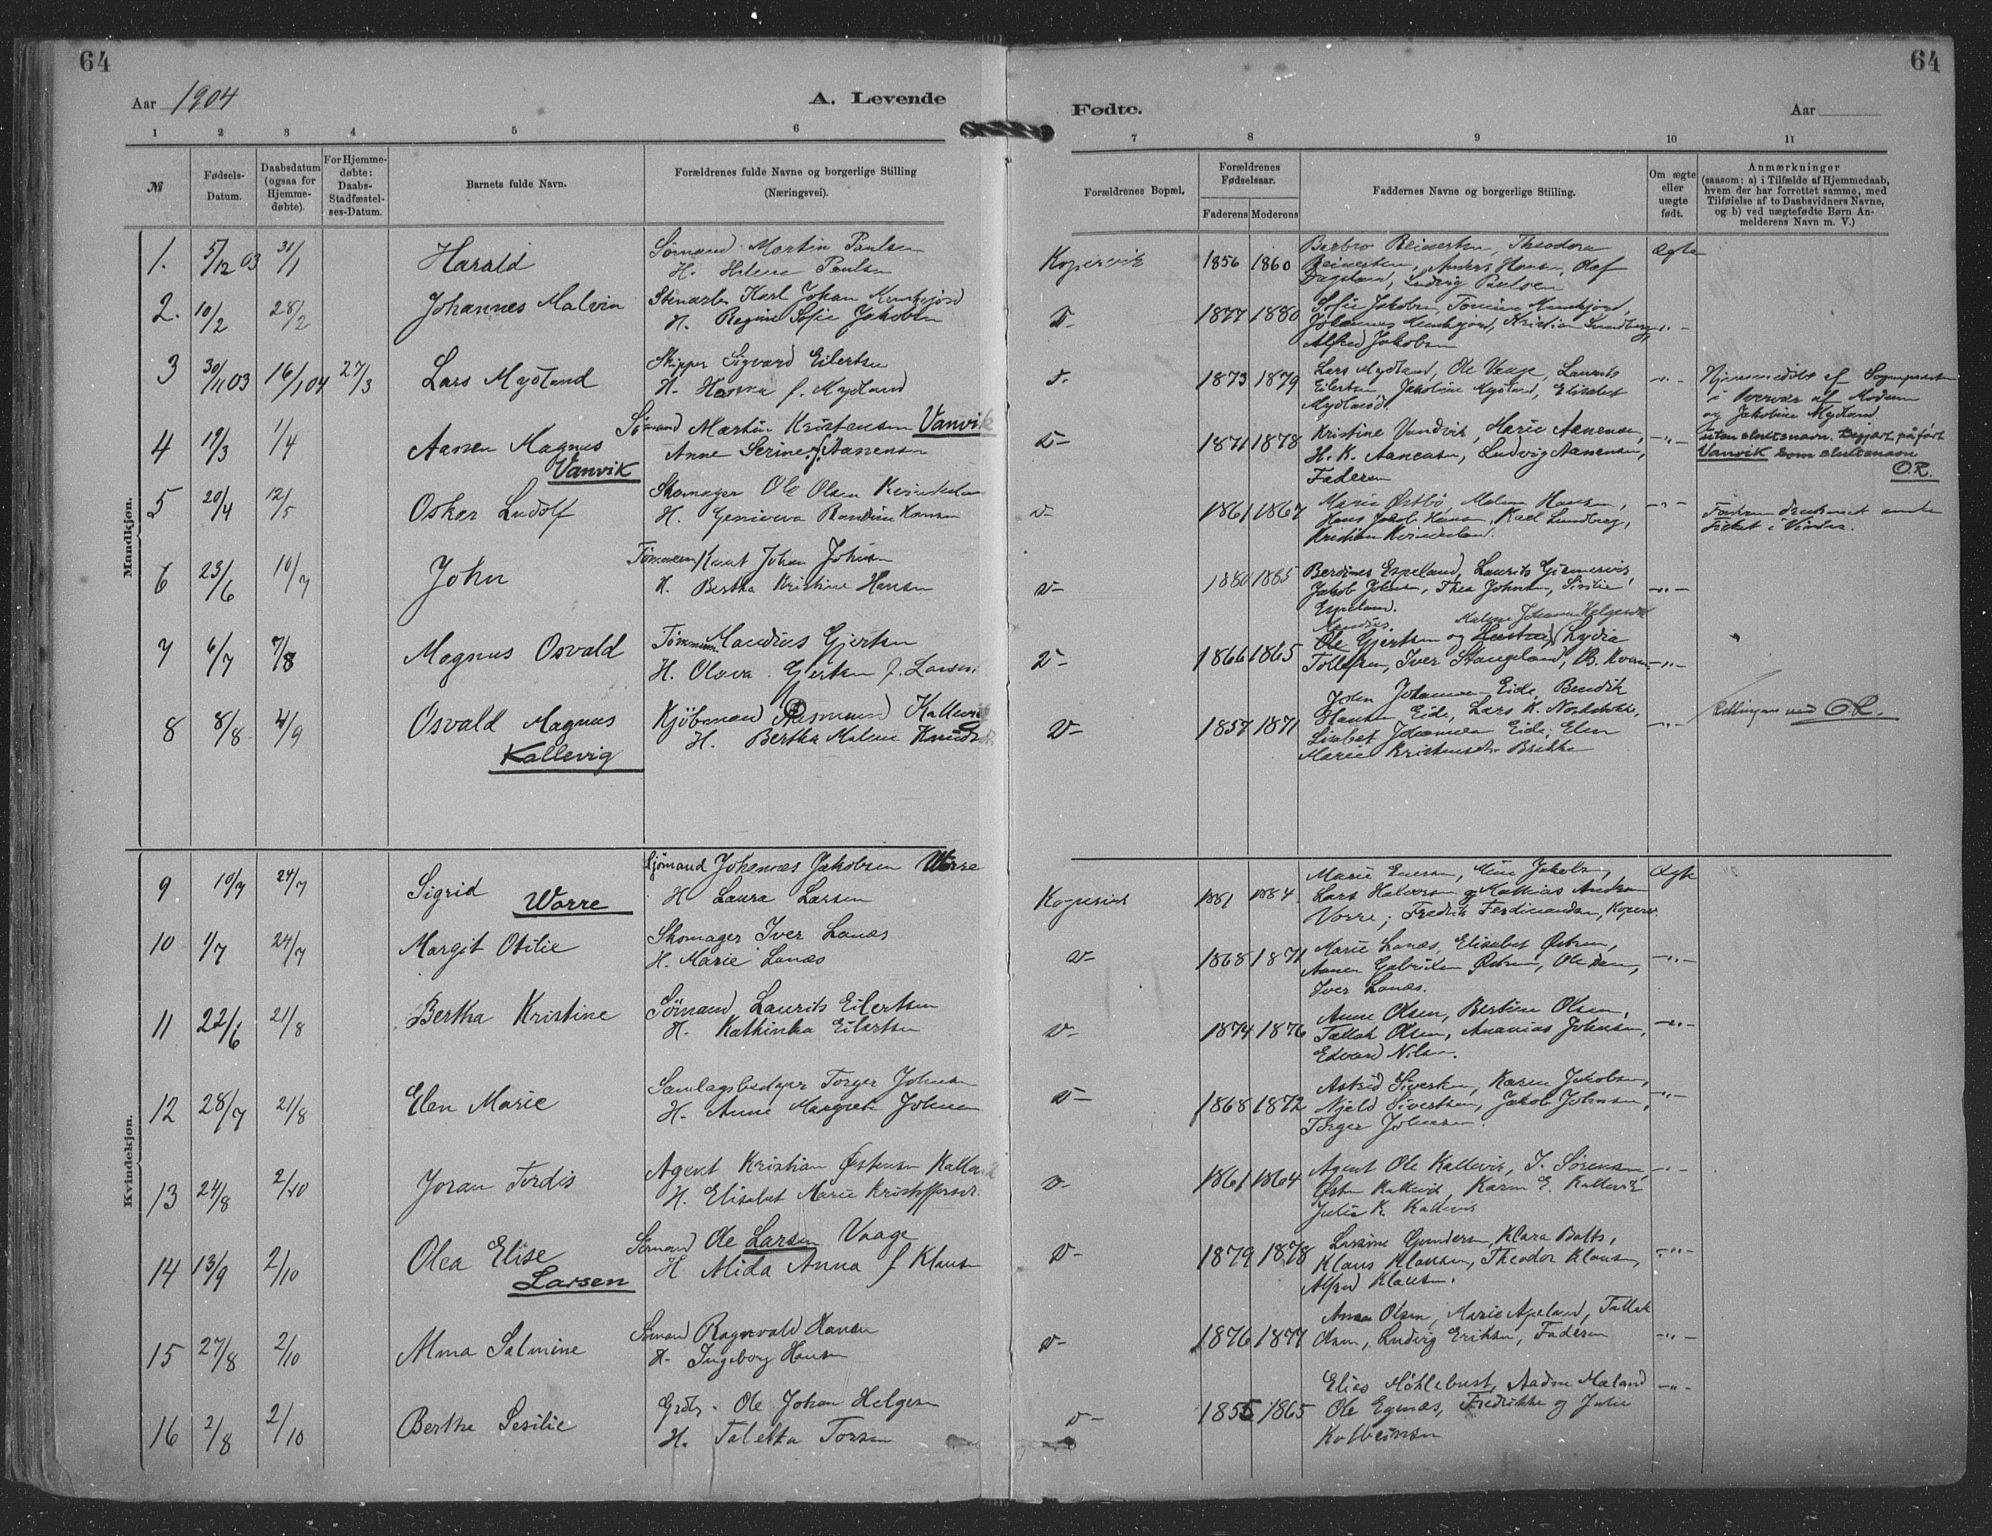 64
64
Aar 1904
A. Levende
Fødte.
Aar
1 2 3 4 5 6
7 8 9 10 11
№
Fødsels-
Datum.
Daabsdatum
(ogsaa for
Hjemme-
døbte).
For Hjemme-
døbte:
Daabs-
Stadfæstel-
ses-Datum.
Barnets fulde Navn.
Forældrenes fulde Navne og borgerlige Stilling
(Næringsvei).
Forældrenes Bopæl.
Forældrenes
Fødselsaar.
Faderens Moderens
Faddernes Navne og borgerlige Stilling.
Om ægte
eller
uægte
født.
Anmærkninger
(saasom: a) i Tilfælde af Hjemmedaab,
hvem der har forrettet samme, med
Tilføielse af to Daabsvidners Navne,
og b) ved uægtefødte Børn An-
melderens Navn m. V.)
Mandkjøn.
1. 5/12 03 31/1 Harald
Sømand Martin Paulsen
H. Helene Paulsen
Kopervik 1856 1860
Berbro Reinertsen, Theodora
Reinertsen, Anders Hansen, Olaf
Dagsland, Ludvig Paulsen
Ægte
2. 10/2 28/2 Johannes Malvin
Stenarb. Karl Johan Munkejord
H. Regine Sofie Jakobsen
1877 1880
Sofie Jakobsen, Tomine Munkejord,
Johannes Munkejord, Kristian Lundberg,
Alfred Jakobsen
3 30/11 03 16/1 04 27/3 Lars Mydland
Skipper Sigvard Eilertsen
H. Hanna f. Mydland
1873 1879
Lars Mydland, Ole Vaage, Laurits
Eilertsen, Jakobine Mydland, Elisabet
Hjemmedøbt af Sognepræsten
i Overvær af Moderen
og Jakobine Mydland.
4 19/3 1/4 Aanen Magnus
Vanvik
Sømand Martin Kristensen Vanvik
Anne Serine f. Aanensen
1871 1878
Kristine Vandvik, Marie Aanensen,
H. K. Aanensen, Ludvig Aanensen,
Faderen
uten slutsnavn. Begjært påført
Vanvik som slutsnavn
O.R.
5 20/4 12/5 Oskar Ludolf
Skomager Ole Olsen Kvindesland
H. Geniveva Randine Hansen
1861 1867
Marie Østbø, Malene Hansen,
Hans Jakob Hansen, Karl Lundberg,
Kristian Kvindesland.
6 23/6 10/7 John
Tømmerm. Knut Johan Johnsen
H. Bertha Kristine Hansen
1880 1885
Berdines Espeland, Laurits Grønnevik,
Jakob Johnsen, Thea Johnsen, Sisilie
Espeland.
7 6/7 7/8 Magnus Osvald
Tømmerm. Mandius Gjertsen
H. Olava Gjertsen f. Larsen
1866 1865
Ole Gjertsen og Hustru, Lydia
Tollefsen, Iver Stangeland, B. Kvam
8 8/8 4/9 Osvald Magnus
Kallevig
Kjøbmand Rasmus Kallevig
H. Bertha Malene Knudsdtr
1857 1871
John Johannesen Eide, Bendik
Hansen Eide, Lars K. Nordstokke,
Lisabet Johannesen Eide, Elen
Marie Kristensdtr. Brekke
Rettingen ved O.R.
Kvindekjøn.
9 10/7 24/7 Sigrid
Worre
Sjømand Johannes Jakobsen Worre
H Laura Larsen
Kopervik 1881 1884
Marie Enersen, Mine Jakobsen,
Lars Halvorsen og Mathias Andersen
Vorre; Fredrik Ferdinandsen, Koperv.
Ægte
10 1/7 24/7 Margit Otilie
Skomager Iver Lanæs
H. Marie Lanæs
1868 1871
Marie Lanæs, Elisabet Østern,
Aanen Gabrielsen Østern,
Iver Lanæs.
11 22/6 21/8 Bertha Kristine
Sømand Laurits Eilertsen
H. Kathinka Eilertsen
1874 1876
Anne Olsen, Bertine Olsen,
Tallak Olsen, Ananias Johnsen,
Edvard Nilsen.
12 28/7 21/8 Elen Marie
Samlagsbestyrer Torger Johnsen
H. Anne Margrethe Johnsen
1868 1872
Astrid Sivertsen, Karen Jakobsen,
Njeld Sivertsen, Jakob Johnsen,
Torger Johnsen.
13 24/8 2/10 Joran Tordis
Agent Kristian Østensen Kallevik
H. Elisabet Marie Kristoffersdtr.
1861 1864
Agent Ole Kallevik, J. Sørensen,
Østen Kallevik, Karen E. Kallevik
Julie K. Kallevik
14 13/9 2/10 Olea Elise
Larsen
Sømand Ole Larsen Vaage
H Alida Anna f Klausen
1879 1878
Lisine Gundersen, Klara Batts,
Klaus Klausen, Theodor Klausen,
Alfred Klausen.
15 27/8 2/10 Alma Salmine
Sømand Ragnvald Hansen
H. Ingeborg Hansen
1876 1877
Anna Olsen, Marie Apeland, Tallak
Olsen, Ludvig Eriksen, Faderen
16 2/8 2/10 Berthe Sesilie
Ole Johan Helgesen
H. Taletta Torsen
1855 1865
Elias Møhlebust, Aadne Mæland
Ole Egenæs, Fredrikke og Julie
Kolbeinsen